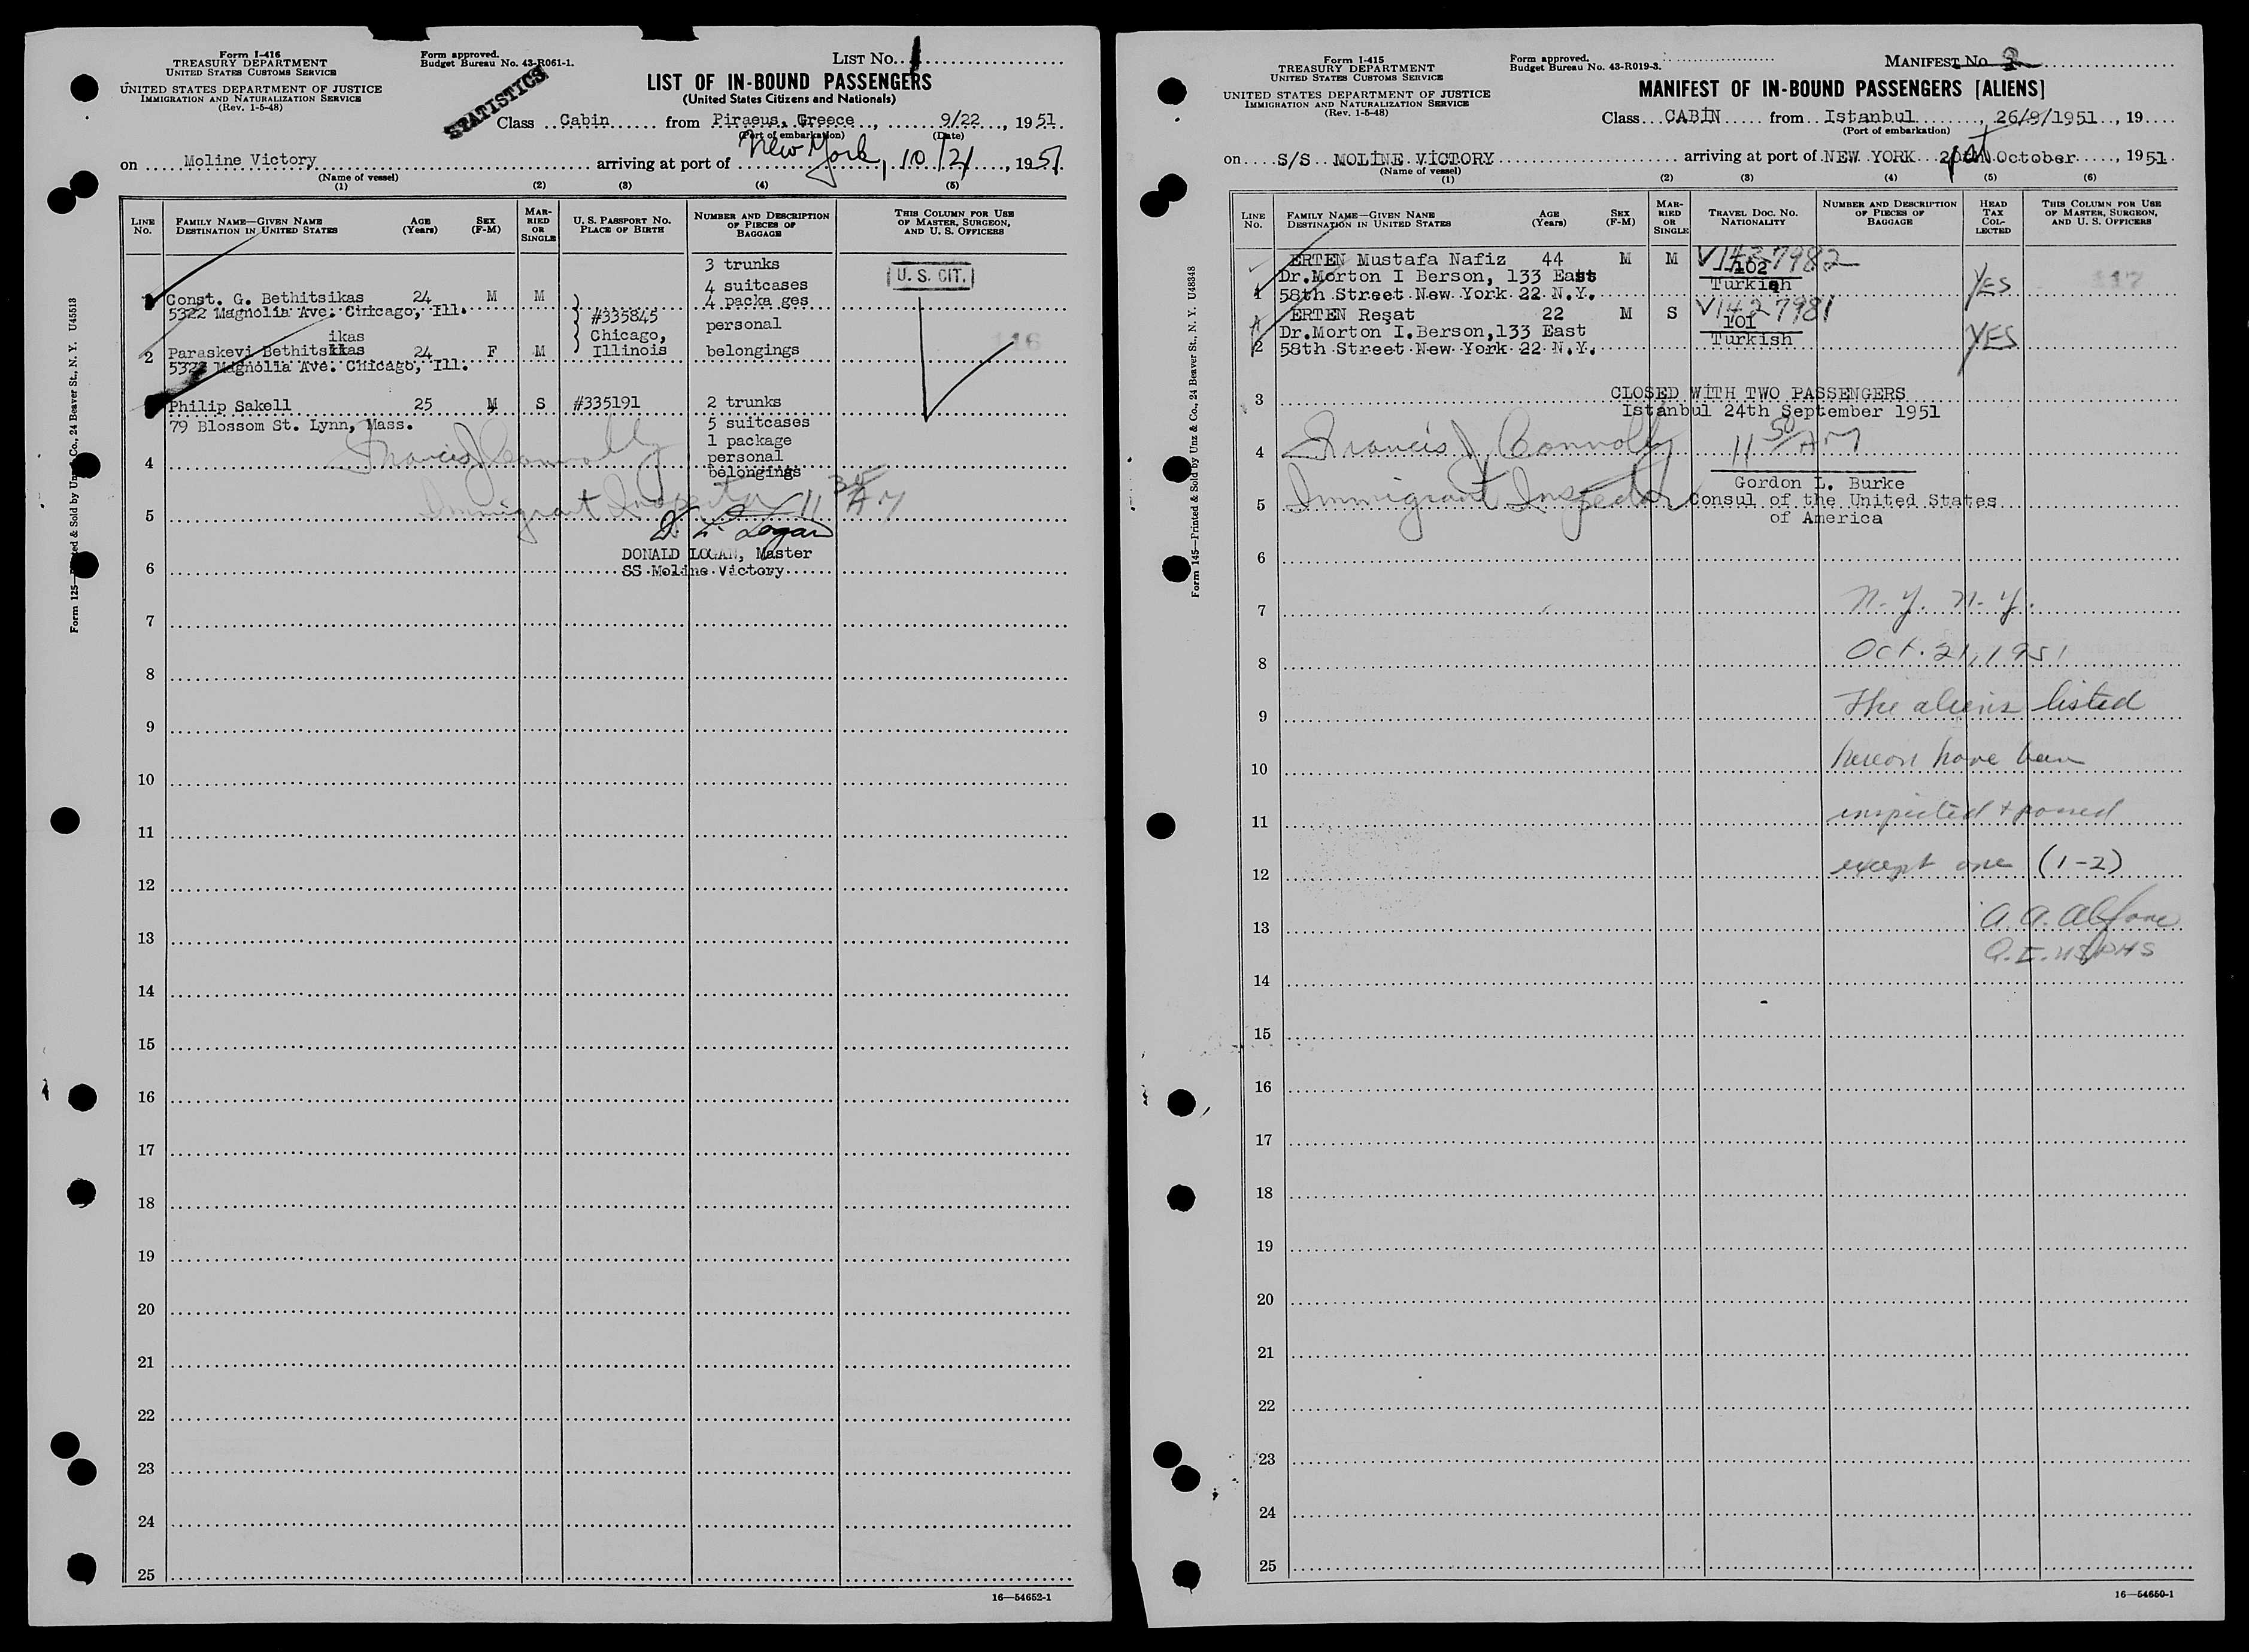 Form I-416
TREASURY DEPARTMENT
UNITED STATES CUSTOMS SERVICE
UNITED STATES DEPARTMENT OF JUSTICE
IMMIGRATION AND NATURALIZATION SERVICE
(Rev. 1-5-48)
Form approved.
Budget Bureau No. 43-R061-1.
STATISTICS
LIST NO. 1
LIST OF IN-BOUND PASSENGERS
(United States Citizens and Nationals)
Class Cabin from Piraeus, Greece, 9/22, 1951
(Port of embarkation) (Date)
on Moline Victory arriving at port of New York, 10/21, 1951
(Name of vessel)
(1) (2) (3) (4) (5)
LINE NO.
FAMILY NAME—GIVEN NAME
DESTINATION IN UNITED STATES
AGE (Years)
SEX (F-M)
MARRIED OR SINGLE
U. S. PASSPORT NO.
PLACE OF BIRTH
NUMBER AND DESCRIPTION OF PIECES OF BAGGAGE
THIS COLUMN FOR USE OF MASTER, SURGEON, AND U. S. OFFICERS
3 trunks
4 suitcases
U. S. CIT.
1 Const. G. Bethitsikas 24 M M 4 packa ges
5322 Magnolia Ave. Chicago, Ill.
#335845
personal
ikas
Chicago,
116
2 Paraskevi Bethits 24 F M Illinois belongings
5322 Magnolia Ave. Chicago, Ill.
Philip Sakell 25 M S #335191 2 trunks
79 Blossom St. Lynn, Mass. 5 suitcases
1 package
personal
4 Francis J Connolly belongings
5 Immigrant Inspector 11 30 AM
D L Logan
DONALD LOGAN, Master
6 SS Moline Victory
7
8
9
10
11
12
13
14
15
16
17
18
19
20
21
22
23
24
25
16—54652-1
Form 125—Printed & Sold by Unz & Co., 24 Beaver St., N. Y. U45513
Form I-415
TREASURY DEPARTMENT
UNITED STATES CUSTOMS SERVICE
UNITED STATES DEPARTMENT OF JUSTICE
IMMIGRATION AND NATURALIZATION SERVICE
(Rev. 1-5-48)
Form approved.
Budget Bureau No. 43-R019-3.
MANIFEST NO. 2
MANIFEST OF IN-BOUND PASSENGERS [ALIENS]
Class CABİN from Istanbul, 26/9/1951, 19
(Port of embarkation)
on S/S MOLİNE VİCTORY arriving at port of NEW YORK 20th October, 1951
(Name of vessel)
(1) (2) (3) (4) (5) (6)
LINE NO.
FAMILY NAME—GIVEN NAME
DESTINATION IN UNITED STATES
AGE (Years)
SEX (F-M)
MARRIED OR SINGLE
TRAVEL DOC. NO.
NATIONALITY
NUMBER AND DESCRIPTION OF PIECES OF BAGGAGE
HEAD TAX COLLECTED
THIS COLUMN FOR USE OF MASTER, SURGEON, AND U. S. OFFICERS
ERTEN Mustafa Nafiz 44 M M V1427982
Dr.Morton I Berson, 133 East 102
1 58th Street New York 22 N.Y. Turkish YES 117
ERTEN Reşat 22 M S V1427981
Dr.Morton I.Berson,133 East 101
2 58th Street New York 22 N.Y. Turkish YES
3 CLOSED WİTH TWO PASSENGERS
Istanbul 24th September 1951
4 Francis J Connolly 11 50 AM
Gordon L. Burke
5 Immigrant Inspector Consul of the United States
of America
6
7 N.Y. N.Y.
8 Oct. 21, 1951
9 The aliens listed
10 hereon have been
11 inspected + passed
12 except one (1-2)
13
14
15
16
17
18
19
20
21
22
23
24
25
16—54650-1
Form 145—Printed & Sold by Unz & Co., 24 Beaver St., N. Y. U48348